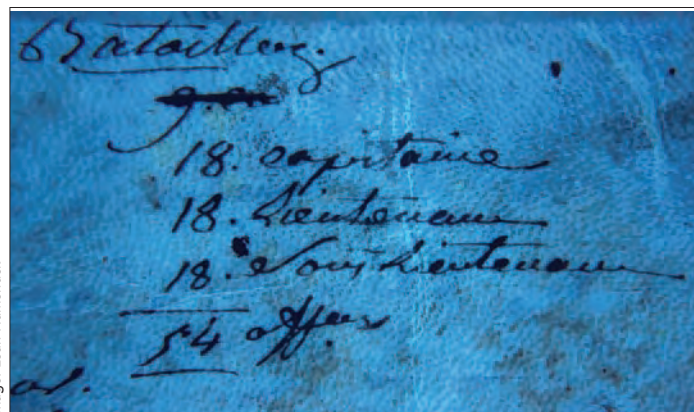 Bataillons.
18. capitaine
18. Lieutenant
18. Sous Lieutenant
54 offers